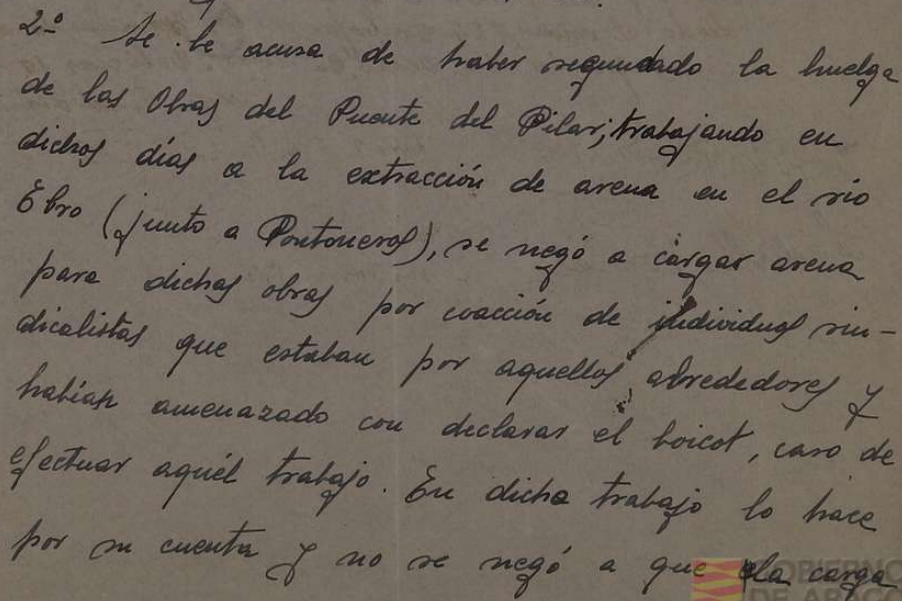 2º Se le acusa de haber segundado la huelga
de las Obras del Puente del Pilar; trabajando en
dichos días a la extracción de arena en el río
Ebro (junto a Pontoneros), se negó a cargar arena
para dichas obras por coacción de individuos sin-
dicalistas que estaban por aquellos abrededores y
habían amenazado con declarar el boicot, caso de
efectuar aquél trabajo. En dicho trabajo lo hace
por su cuenta y no se negó a que la carga
GOBIERNO
DE ARAGO